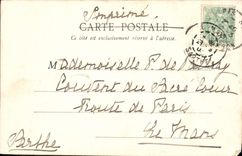 Imprimé
CARTE POSTALE
Ce côté est exclusivement réservé à l'adresse.
Mademoiselle P. de
Couvent du Sacré Coeur
Route de Paris
Le Mans
Sarthe